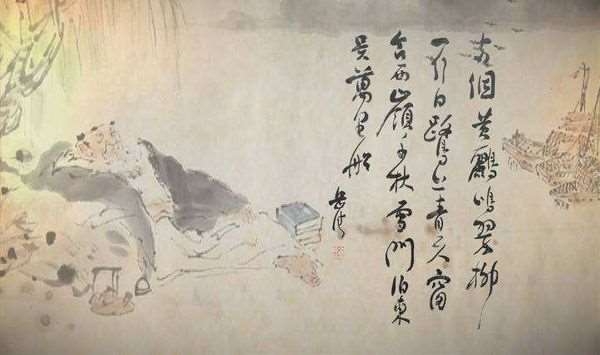 两個黄鸝鳴翠柳
一行白鷺上青天窗
含西嶺千秋雪門泊東
吴萬里船